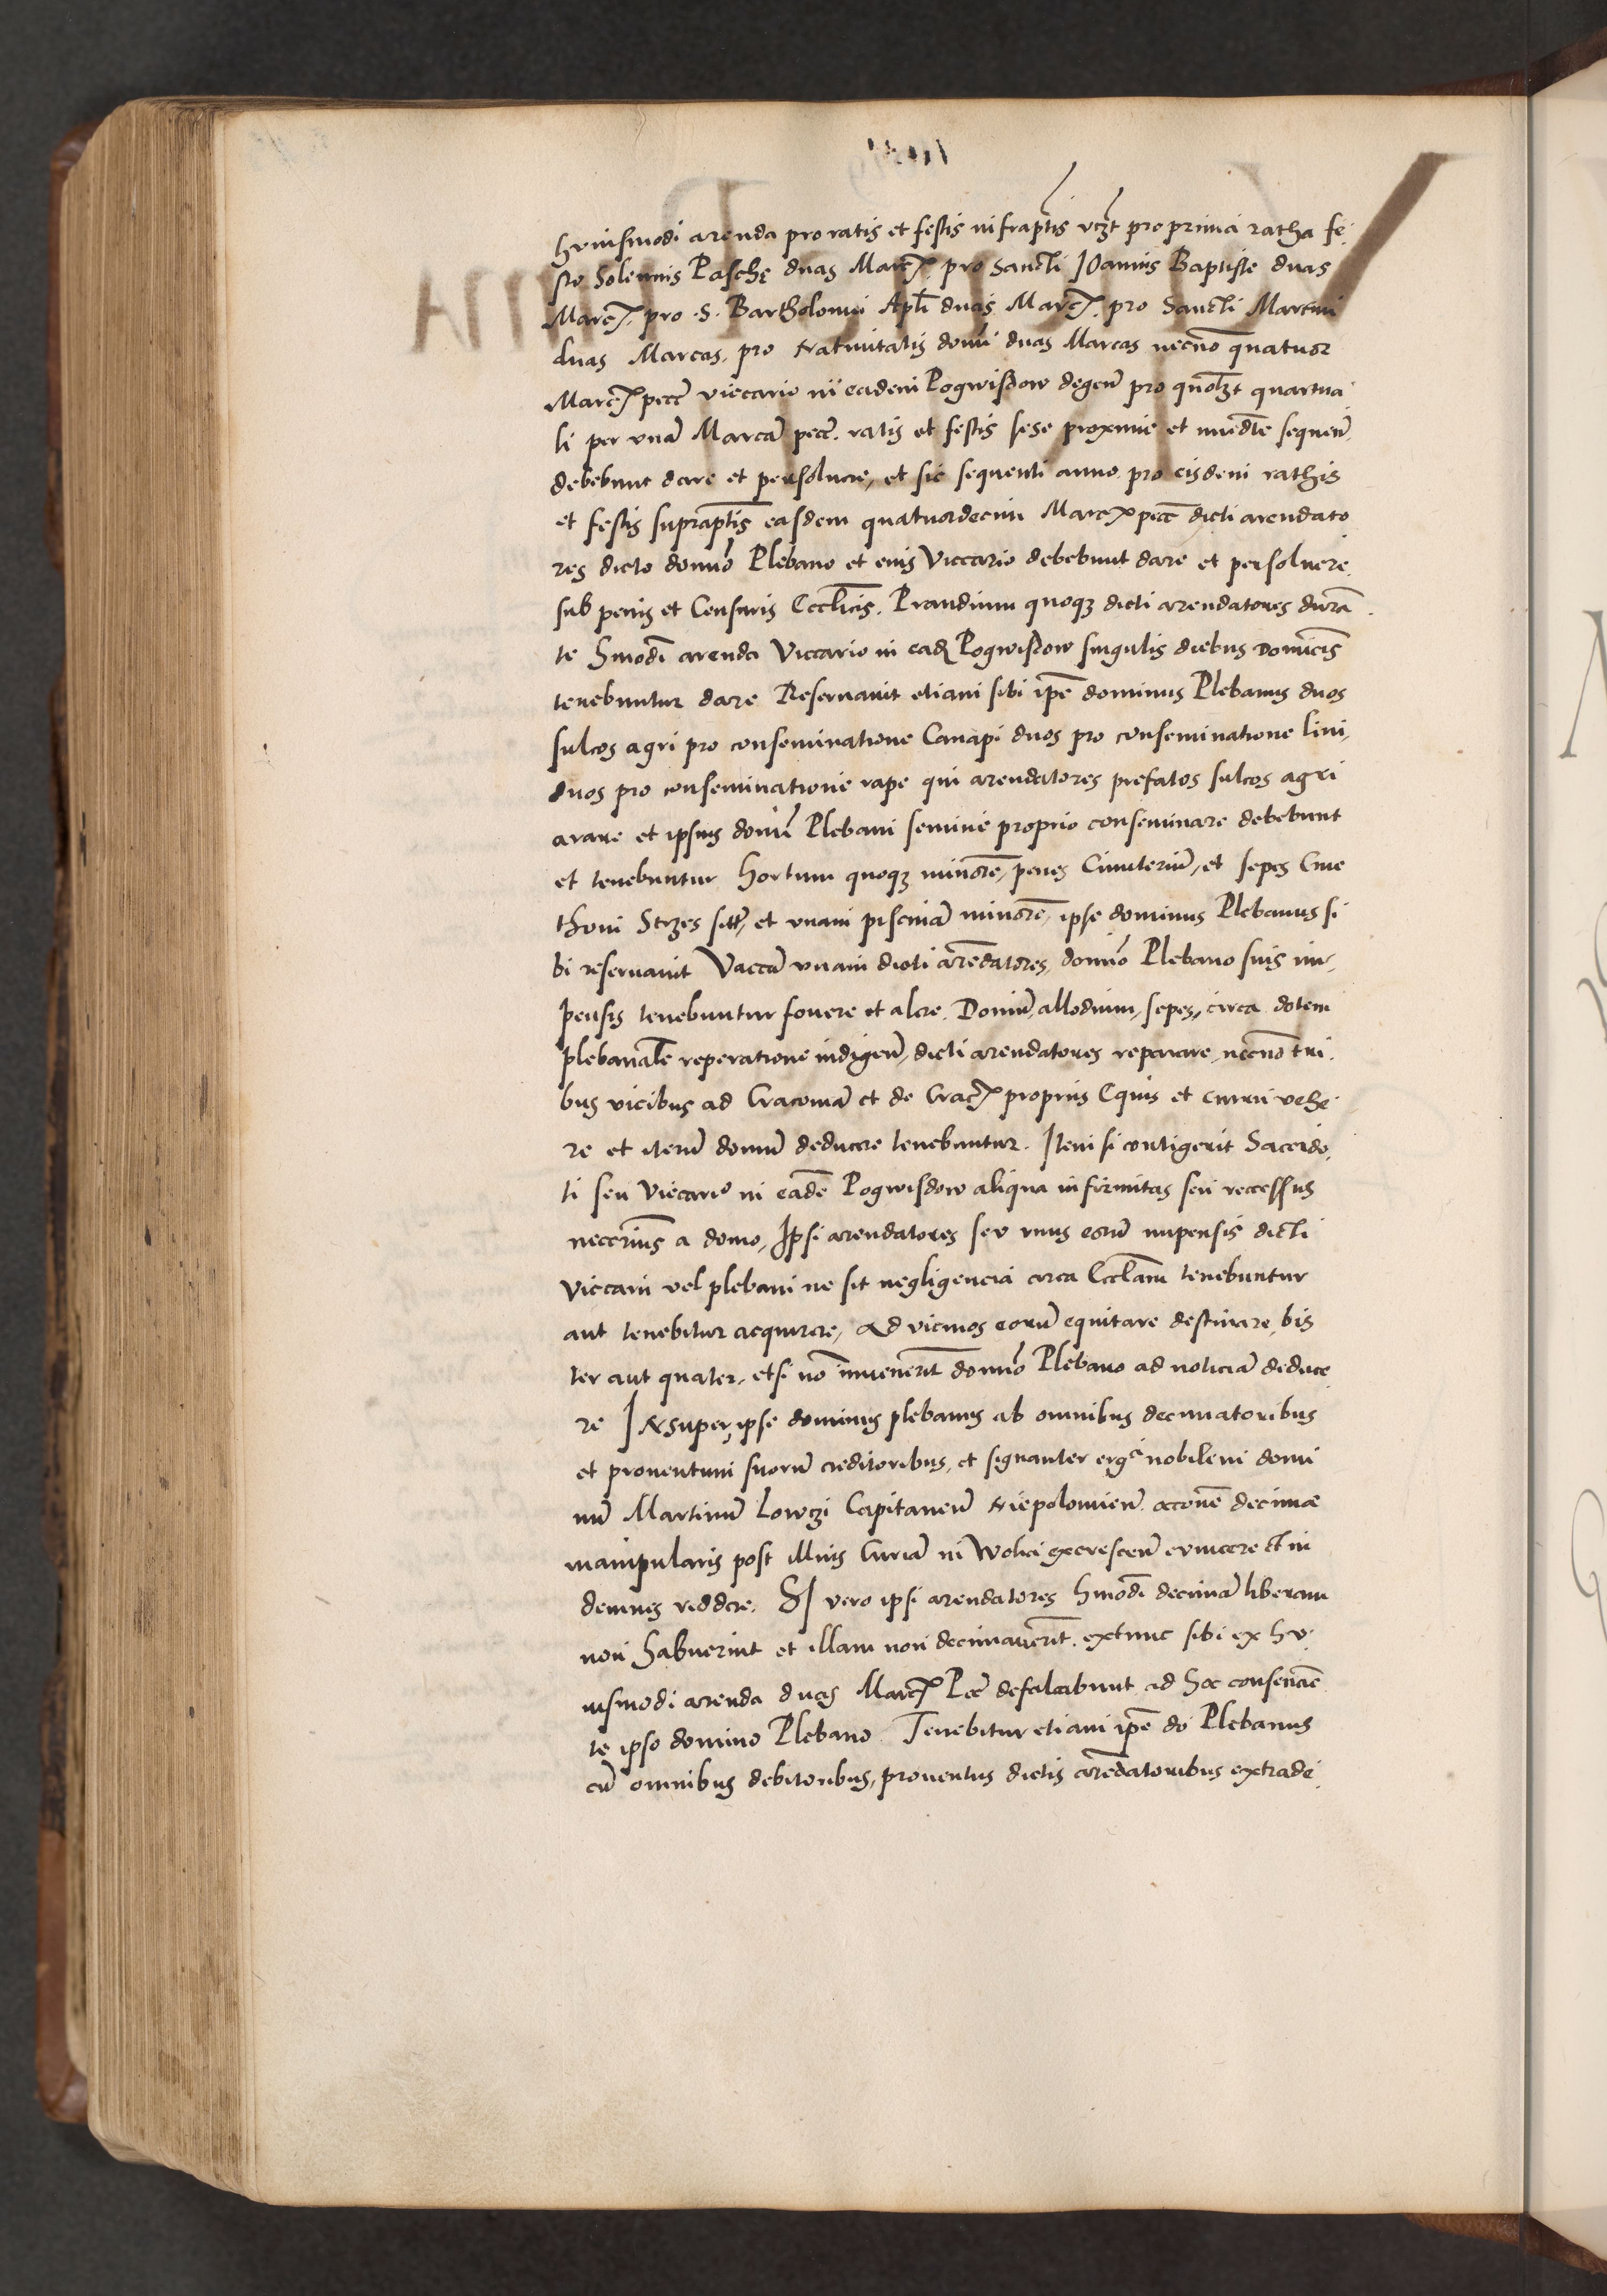 huiusmodi arenda pro ratis et festis infraptis vczt pro prima ratha fe
sto Solennis Paschę duas Marcꝭ. pro Sancti IOannis Baptiste duas
Marcꝭ. pro .S. Bartholomei Apli duas Marcꝭ. pro Sancti Martini
duas Marcas. pro Natiuitatis domi duas Marcas necno quatuor
Marcꝭ pecc viccario in eadem Pogwisdow degen pro quolzt quartua
li per vna Marca pecc. ratis et festis sese proxime et imedte sequen.
debebunt dare et persoluere, et sic sequenti anno pro eisdem rathis
et festis supraptis easdem quatuordecim Marcꝭ pecc dicti arendato
res dicto domno Plebano et eius Viccario debebunt dare et persoluere
sub penis et Censuris Ecclicis. Prandium quoqꝫ dicti arendatores dura
te hmodi arenda Viccario in ead Pogwisdow singulis diebus Domicis
tenebuntur dare Reseruauit etiam sibi ipe dominus Plebanus duos
sulcos agri pro conseminatione Canapi duos pro conseminatione lini,
duos pro conseminatione rape qui arendatores prefatos sulcos agri
arare et ipsius domi Plebani semine proprio conseminare debebunt
et tenebuntur Hortum quoqꝫ minore, penes Cimiteriu, et sepes Cme
thoni Strzes sitt, et vnam piscina minore, ipse dominus Plebanus si
bi reseruauit Vacca vnam dicti aredatores, domno Plebano suis im,
pensis tenebuntur fouere et alere. Domu, allodium, sepes, circa dotem
plebanale reperatione indigen, dicti arendatores reparare, necno tri
bus vicibus ad Cracouia et de Cracꝭ proprijs Equis et curru vehe
re et iteru domu deducere tenebuntur. Item si contigerit Sacerdo,
ti seu Viccario in eade Pogwisdow aliqua infirmitas seu recessus
neccrius a domo, Ipsi arendatores seu vnus eoru impensis dicti
Viccarii vel plebani ne sit negligencia circa Ecclam tenebuntur
aut tenebitur acquirere, ad vicinos eoru equitare destinare, bis
ter aut quater, etsi no inuenerit domno Plebano ad noticia deduce
re INsuper, ipse dominus plebanus ab omnibus decimatoribus
et prouentum suoru creditoribus, et signanter erga nobilem domi
nu Martinu Lowczi Capitaneu Niepolomien. accone decimæ
manipularis post illius Curia in Wolici excrescen euincere et in
demnes reddere. SI vero ipsi arendatores hmodi decima liberam
non habuerint et illam non decimauerit. extunc sibi ex hu
iusmodi arenda duas Marcꝭ Pec defalcabunt ad hoc consencie
te ipso domino Plebano. Tenebitur etiam ipe do Plebanus
cu omnibus debitoribus, prouentus dictis aredatoribus extrade